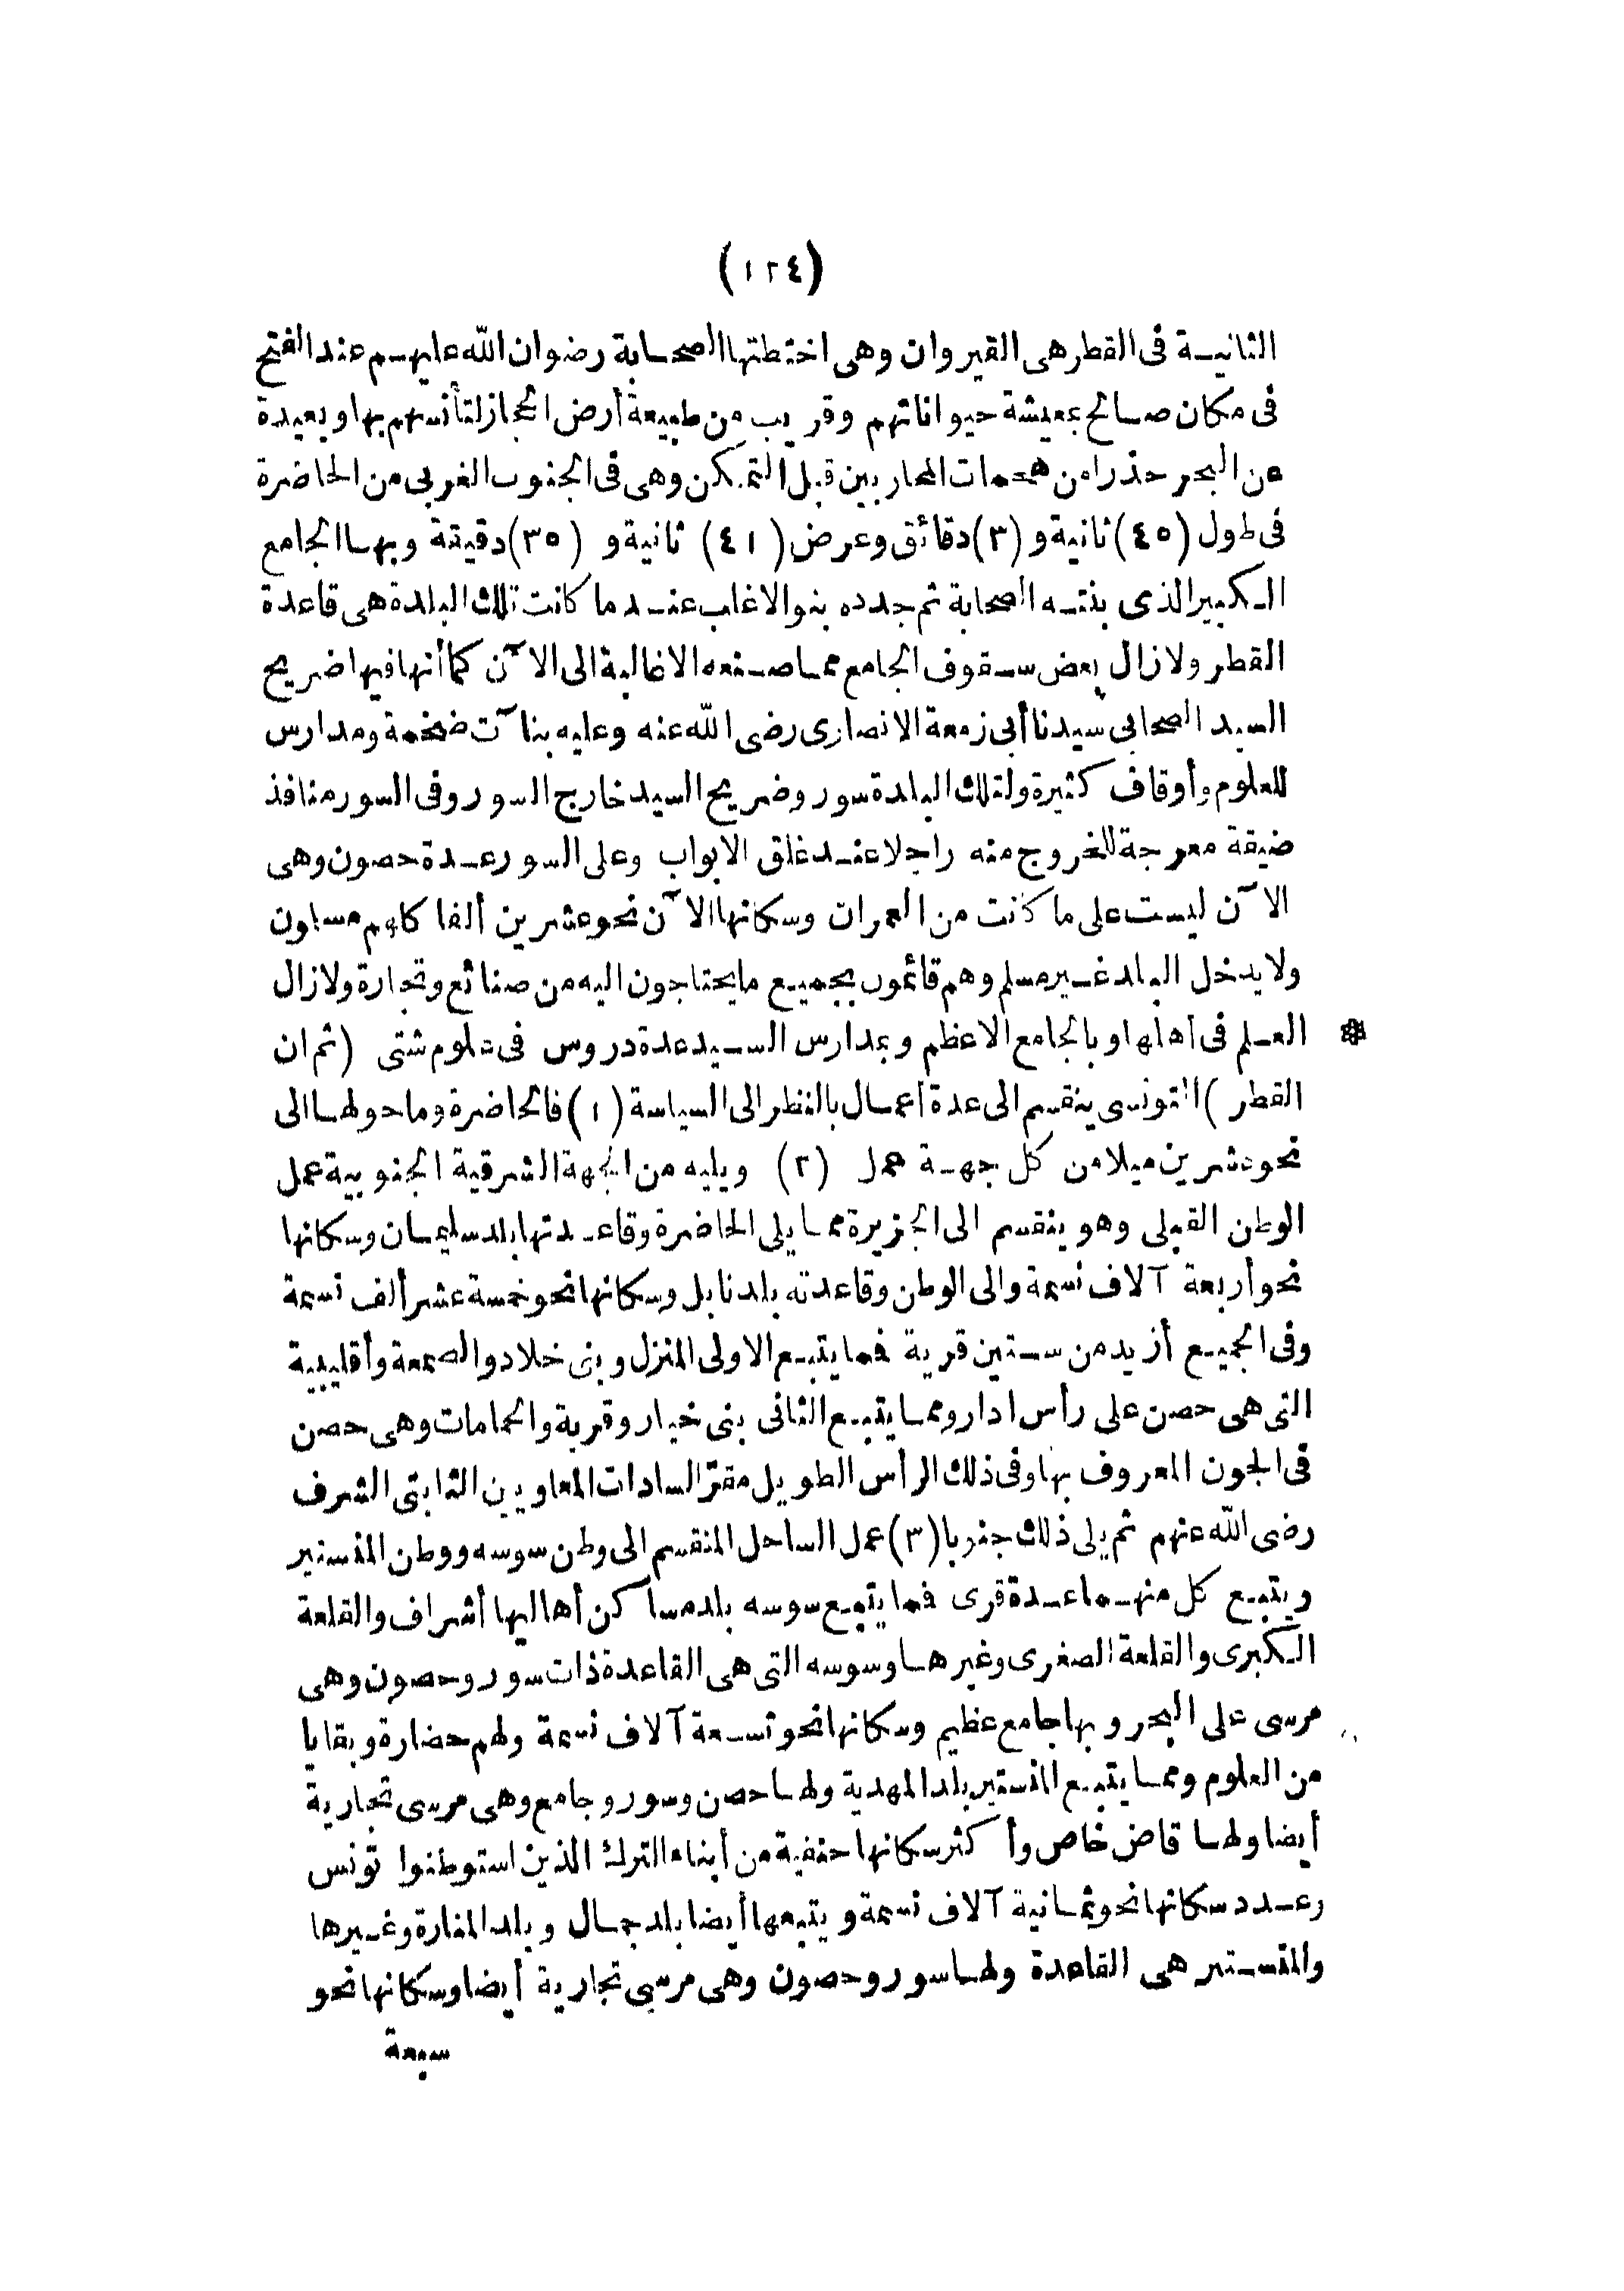 (١٢٤)
الثانية فى القطر هى القيروان وهى اختطتها الصحابة رضوان الله عليهم عند الفتح
فى مكان صالح بمعيشة حيواناتهم وقريب من طبيعة أرض الحجاز لتأنسهم بها وبعيدة
عن البحر حذرا من هجمات المحاربين قبل التمكن وهى فى الجنوب الغربى من الحاضرة
فى طول (٤٥) ثانية و (٣) دقائق وعرض (٤١) ثانية و (٣٥) دقيقة وبها الجامع
الكبير الذى بنته الصحابة ثم جدده بنو الاغلب عندما كانت تلك البلدة هى قاعدة
القطر ولازال بعض سقوف الجامع مما صنعه الاغالبة الى الآن كما أنها فيها ضريح
السيد الصحابى سيدنا أبى زمعة الانصارى رضى الله عنه وعليه بنا آت ضخمة ومدارس
للعلوم وأوقاف كثيرة ولتلك البلدة سور وضريح السيد خارج السور وفى السور منافذ
ضيقة معرجة للخروج منه راجلا عند غلق الابواب وعلى السور عدة حصون وهى
الآن ليست على ما كانت من العمران وسكانها الآن نحو عشرين ألفا كلهم مسلون
ولا يدخل البلد غير مسلم وهم قائمون بجميع ما يحتاجون اليه من صنائع وتجارة ولازال
* العلم فى أهلها وبالجامع الاعظم وبمدارس السيد عدة دروس فى علوم شتى (ثم ان
القطر) التونسى ينقسم الى عدة أعمال بالنظر الى السياسة (١) فالحاضرة وما حولها الى
نحو عشرين ميلا من كل جهة عمل (٢) ويليه من الجهة الشرقية الجنوبية عمل
الوطن القبلى وهو ينقسم الى الجزيرة مما يلى الحاضرة وقاعدتها بلد سليمان وسكانها
نحو أربعة آلاف نسمة والى الوطن وقاعدته بلد نابل وسكانها نحو خمسة عشر ألف نسمة
وفى الجميع أزيد من ستين قرية فما يتبع الاولى المنزل وبنى خلاد والصمعة وأقليبية
التى هى حصن على رأس ادار ومما يتبع الثانى بنى خيار وقربة والحمامات وهى حصن
فى الجون المعروف بها وفى ذلك الرأس الطويل مقر السادات المعاوين الثابتى الشرف
رضى الله عنهم ثم يلى ذلك جنوبا (٣) عمل الساحل المنقسم الى وطن سوسه ووطن المنستير
ويتبع كل منهما عدة قرى فما يتبع سوسه بلد مساكن أهاليها أشراف والقلعة
الكبرى والقلعة الصغرى وغيرها وسوسه التى هى القاعدة ذات سور وحصون وهى
مرسى على البحر وبها جامع عظيم وسكانها نحو تسعة آلاف نسمة ولهم حضارة وبقايا
من العلوم ومما يتبع المنستير بلد المهدية ولها حصن وسور وجامع وهى مرسى تجارية
أيضا ولها قاض خاص وأكثر سكانها حنفية من أبناء الترك الذين استوطنوا تونس
وعدد سكانها نحو ثمانية آلاف نسمة ويتبعها أيضا بلد جمال وبلد المنارة وغيرها
والمنستير هى القاعدة ولها سور وحصون وهى مرسى تجارية أيضا وسكانها نحو
سبعة